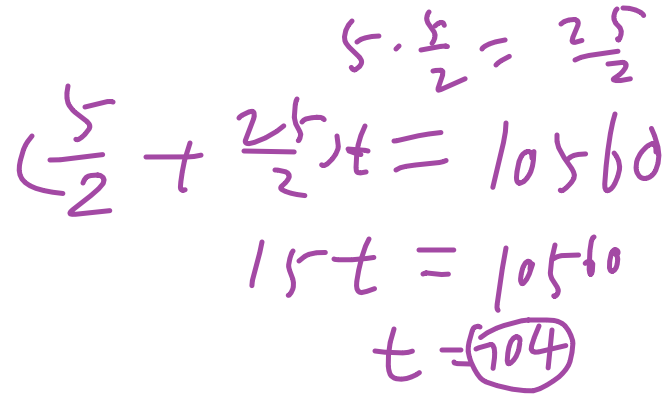 5 · 5/2 = 25/2
(5/2 + 25/2)t = 10560
15t = 10560
t = 704